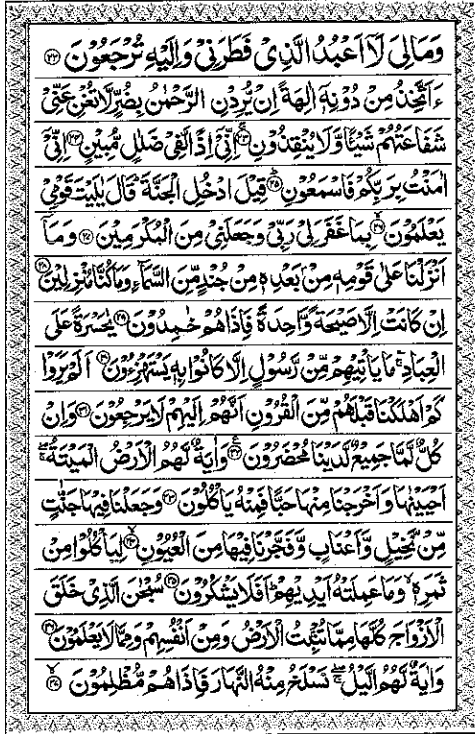 وَمَا لِيَ لَآ اَعْبُدُ الَّذِىْ فَطَرَنِىْ وَاِلَيْهِ تُرْجَعُوْنَ ۝۲۲
ءَاَتَّخِذُ مِنْ دُوْنِهٖٓ اٰلِهَةً اِنْ يُّرِدْنِ الرَّحْمٰنُ بِضُرٍّ لَّا تُغْنِ عَنِّىْ
شَفَاعَتُهُمْ شَيْئًا وَّلَا يُنْقِذُوْنِ ۝۲۳ اِنِّىْٓ اِذًا لَّفِىْ ضَلٰلٍ مُّبِيْنٍ ۝۲۴ اِنِّىْٓ
اٰمَنْتُ بِرَبِّكُمْ فَاسْمَعُوْنِ ۝۲۵ قِيْلَ ادْخُلِ الْجَنَّةَ ؕ قَالَ يٰلَيْتَ قَوْمِىْ
يَعْلَمُوْنَ ۝۲۶ بِمَا غَفَرَ لِىْ رَبِّىْ وَجَعَلَنِىْ مِنَ الْمُكْرَمِيْنَ ۝۲۷ وَمَآ
اَنْزَلْنَا عَلٰى قَوْمِهٖ مِنْۢ بَعْدِهٖ مِنْ جُنْدٍ مِّنَ السَّمَآءِ وَمَا كُنَّا مُنْزِلِيْنَ ۝۲۸
اِنْ كَانَتْ اِلَّا صَيْحَةً وَّاحِدَةً فَاِذَا هُمْ خٰمِدُوْنَ ۝۲۹ يٰحَسْرَةً عَلَى
الْعِبَادِ ۚ مَا يَاْتِيْهِمْ مِّنْ رَّسُوْلٍ اِلَّا كَانُوْا بِهٖ يَسْتَهْزِءُوْنَ ۝۳۰ اَلَمْ يَرَوْا
كَمْ اَهْلَكْنَا قَبْلَهُمْ مِّنَ الْقُرُوْنِ اَنَّهُمْ اِلَيْهِمْ لَا يَرْجِعُوْنَ ۝۳۱ وَاِنْ
كُلٌّ لَّمَّا جَمِيْعٌ لَّدَيْنَا مُحْضَرُوْنَ ۝۳۲ وَاٰيَةٌ لَّهُمُ الْاَرْضُ الْمَيْتَةُ ۖۚ
اَحْيَيْنٰهَا وَاَخْرَجْنَا مِنْهَا حَبًّا فَمِنْهُ يَاْكُلُوْنَ ۝۳۳ وَجَعَلْنَا فِيْهَا جَنّٰتٍ
مِّنْ نَّخِيْلٍ وَّاَعْنَابٍ وَّفَجَّرْنَا فِيْهَا مِنَ الْعُيُوْنِ ۝۳۴ لِيَاْكُلُوْا مِنْ
ثَمَرِهٖ ۙ وَمَا عَمِلَتْهُ اَيْدِيْهِمْ ؕ اَفَلَا يَشْكُرُوْنَ ۝۳۵ سُبْحٰنَ الَّذِىْ خَلَقَ
الْاَزْوَاجَ كُلَّهَا مِمَّا تُنْۢبِتُ الْاَرْضُ وَمِنْ اَنْفُسِهِمْ وَمِمَّا لَا يَعْلَمُوْنَ ۝۳۶
وَاٰيَةٌ لَّهُمُ الَّيْلُ ۖۚ نَسْلَخُ مِنْهُ النَّهَارَ فَاِذَا هُمْ مُّظْلِمُوْنَ ۝۳۷